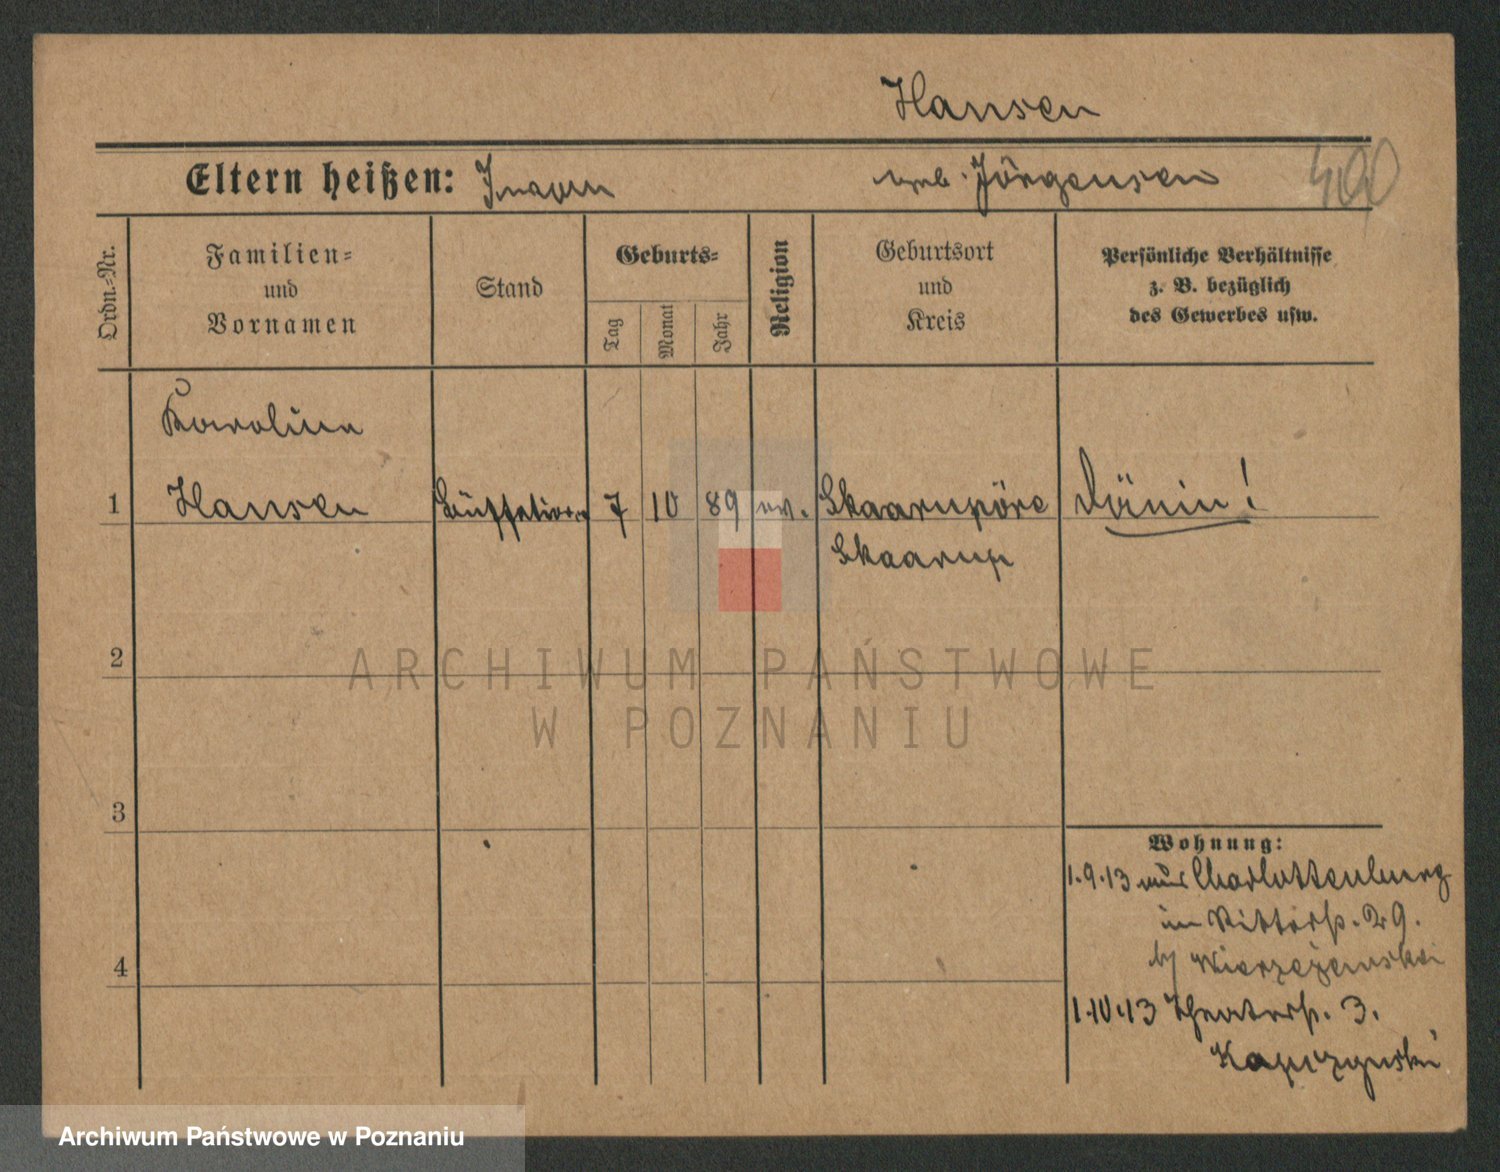 Hansen
Eltern heißen: geb. Jörgensen 400
Ordn.-Nr.
Familien-
und
Vornamen
Stand
Geburts-
Tag
Monat
Jahr
Religion
Geburtsort
und
Kreis
Persönliche Verhältnisse
z. B. bezüglich
des Gewerbes usw.
Karoline
1 Hansen 7 10 89 ev. Skaarupöre Dänin!
Skaarup
2
3
4
Wohnung:
1.9.13 aus Charlottenburg
in Ritterstr. 29.
b/
1.10.13 Theaterstr. 3.
ARCHIWUM PAŃSTWOWE
W POZNANIU
Archiwum Państwowe w Poznaniu